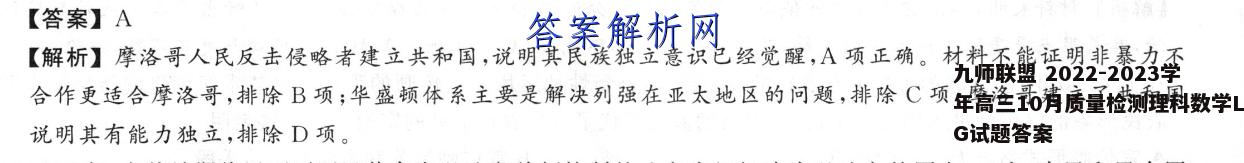 【答案】A
答案解析网
【解析】摩洛哥人民反击侵略者建立共和国,说明其民族独立意识已经觉醒,A 项正确。材料不能证明非暴力不
合作更适合摩洛哥,排除 B 项;华盛顿体系主要是解决列强在亚太地区的问题,排除 C 项
说明其有能力独立,排除 D 项。
九师联盟 2022-2023学
年高三10月质量检测理科数学L
G试题答案